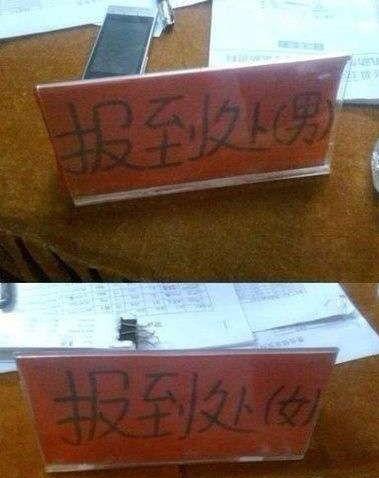 报到处(男)
报到处(女)